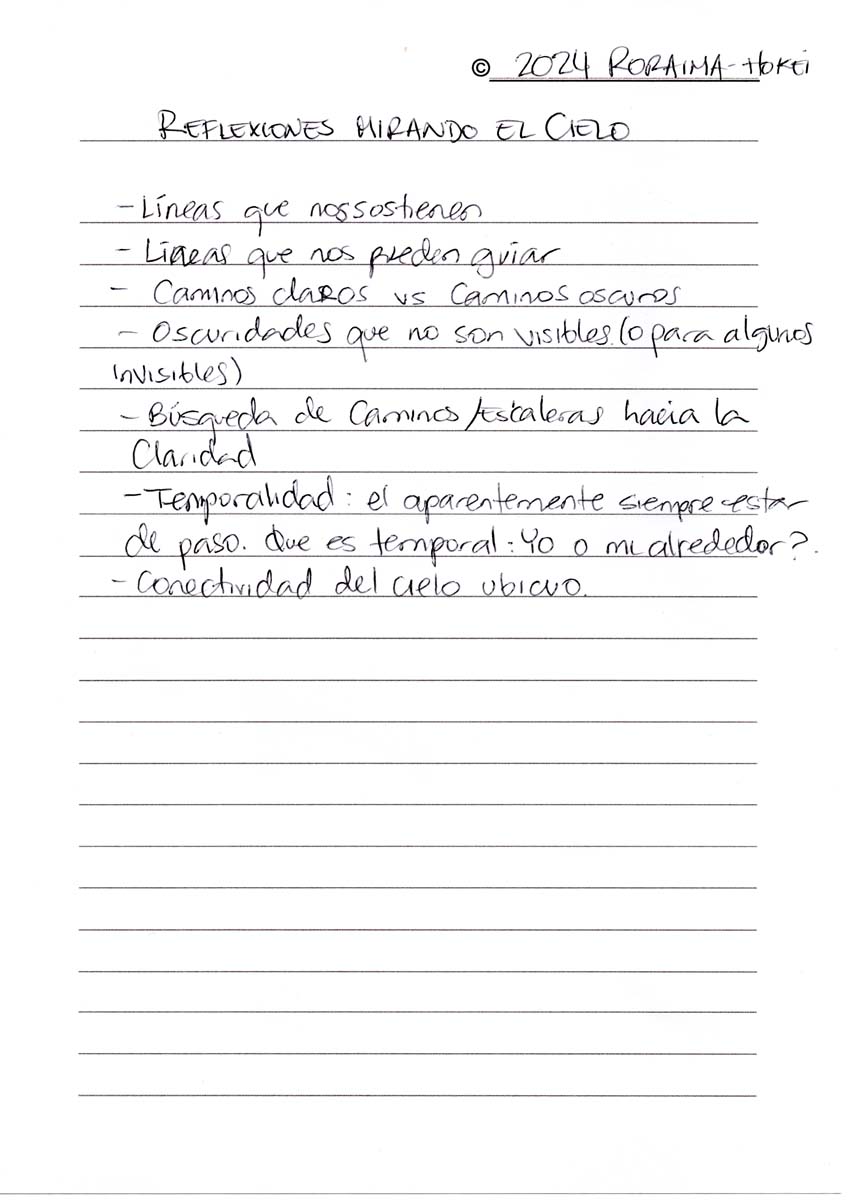 © 2024 RORAIMA-HOKEI
REFLEXIONES MIRANDO EL CIELO
- Líneas que nos sostienen
- Líneas que nos pueden guiar
- Caminos claros vs Caminos oscuros
- Oscuridades que no son visibles (o para algunos
invisibles)
- Búsqueda de Caminos/Escaleras hacia la
Claridad
- Temporalidad: el aparentemente siempre estar
de paso. Que es temporal: Yo o mi alrededor?.
- Conectividad del cielo ubicuo.